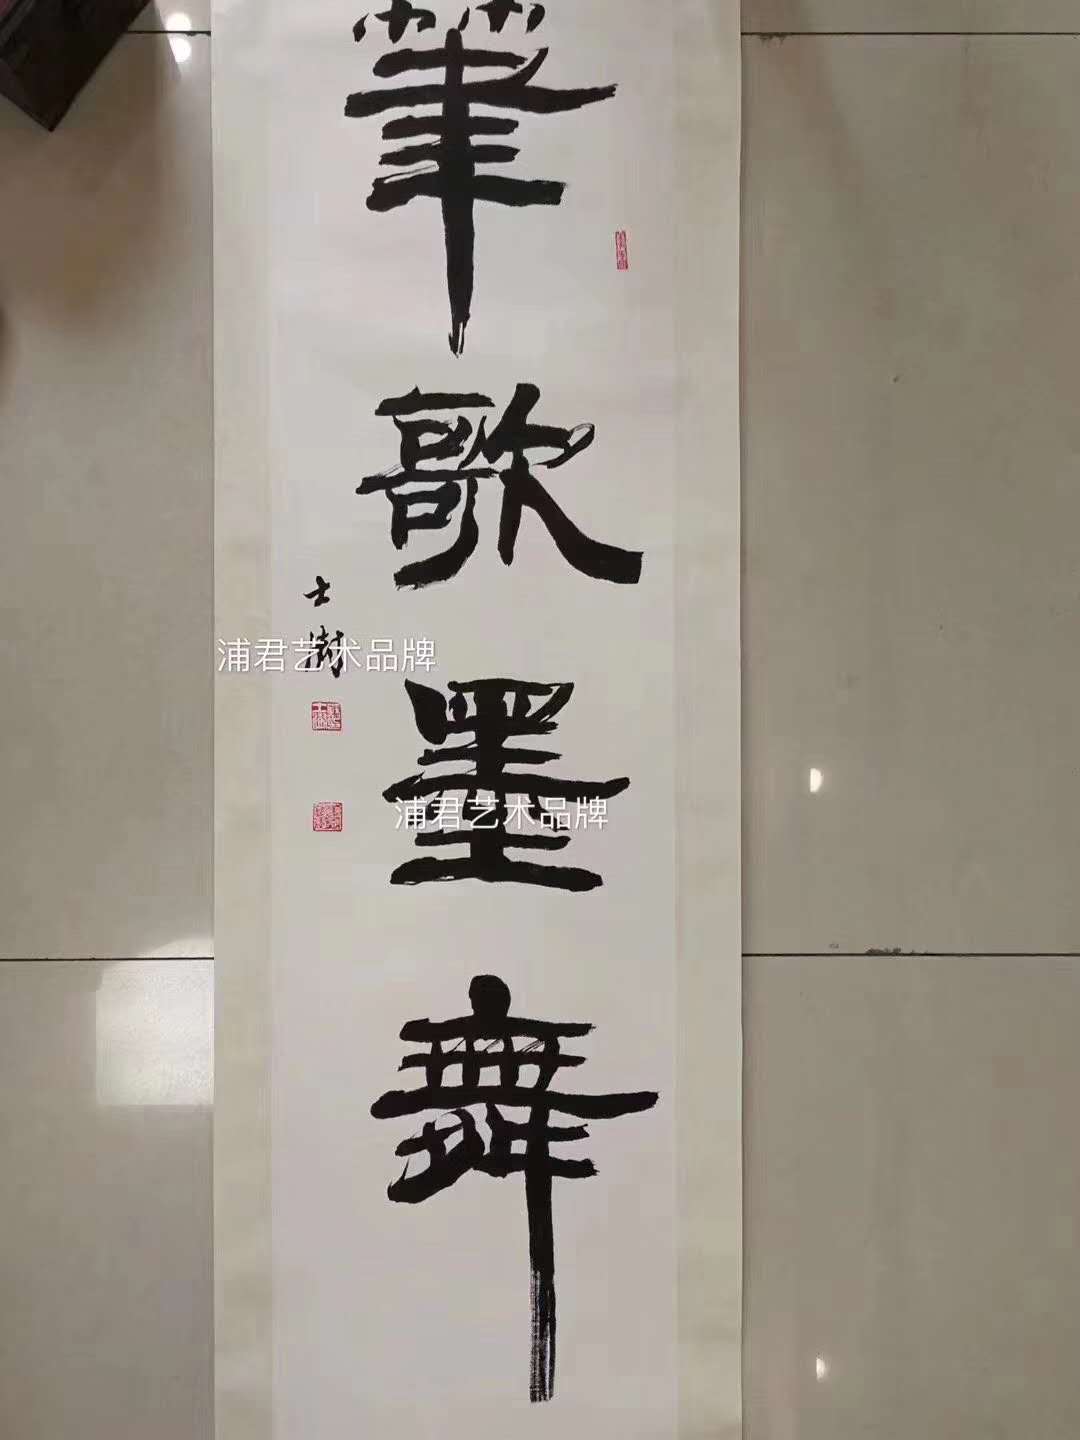 筆歌墨舞
士澍
浦君艺术品牌
浦君艺术品牌